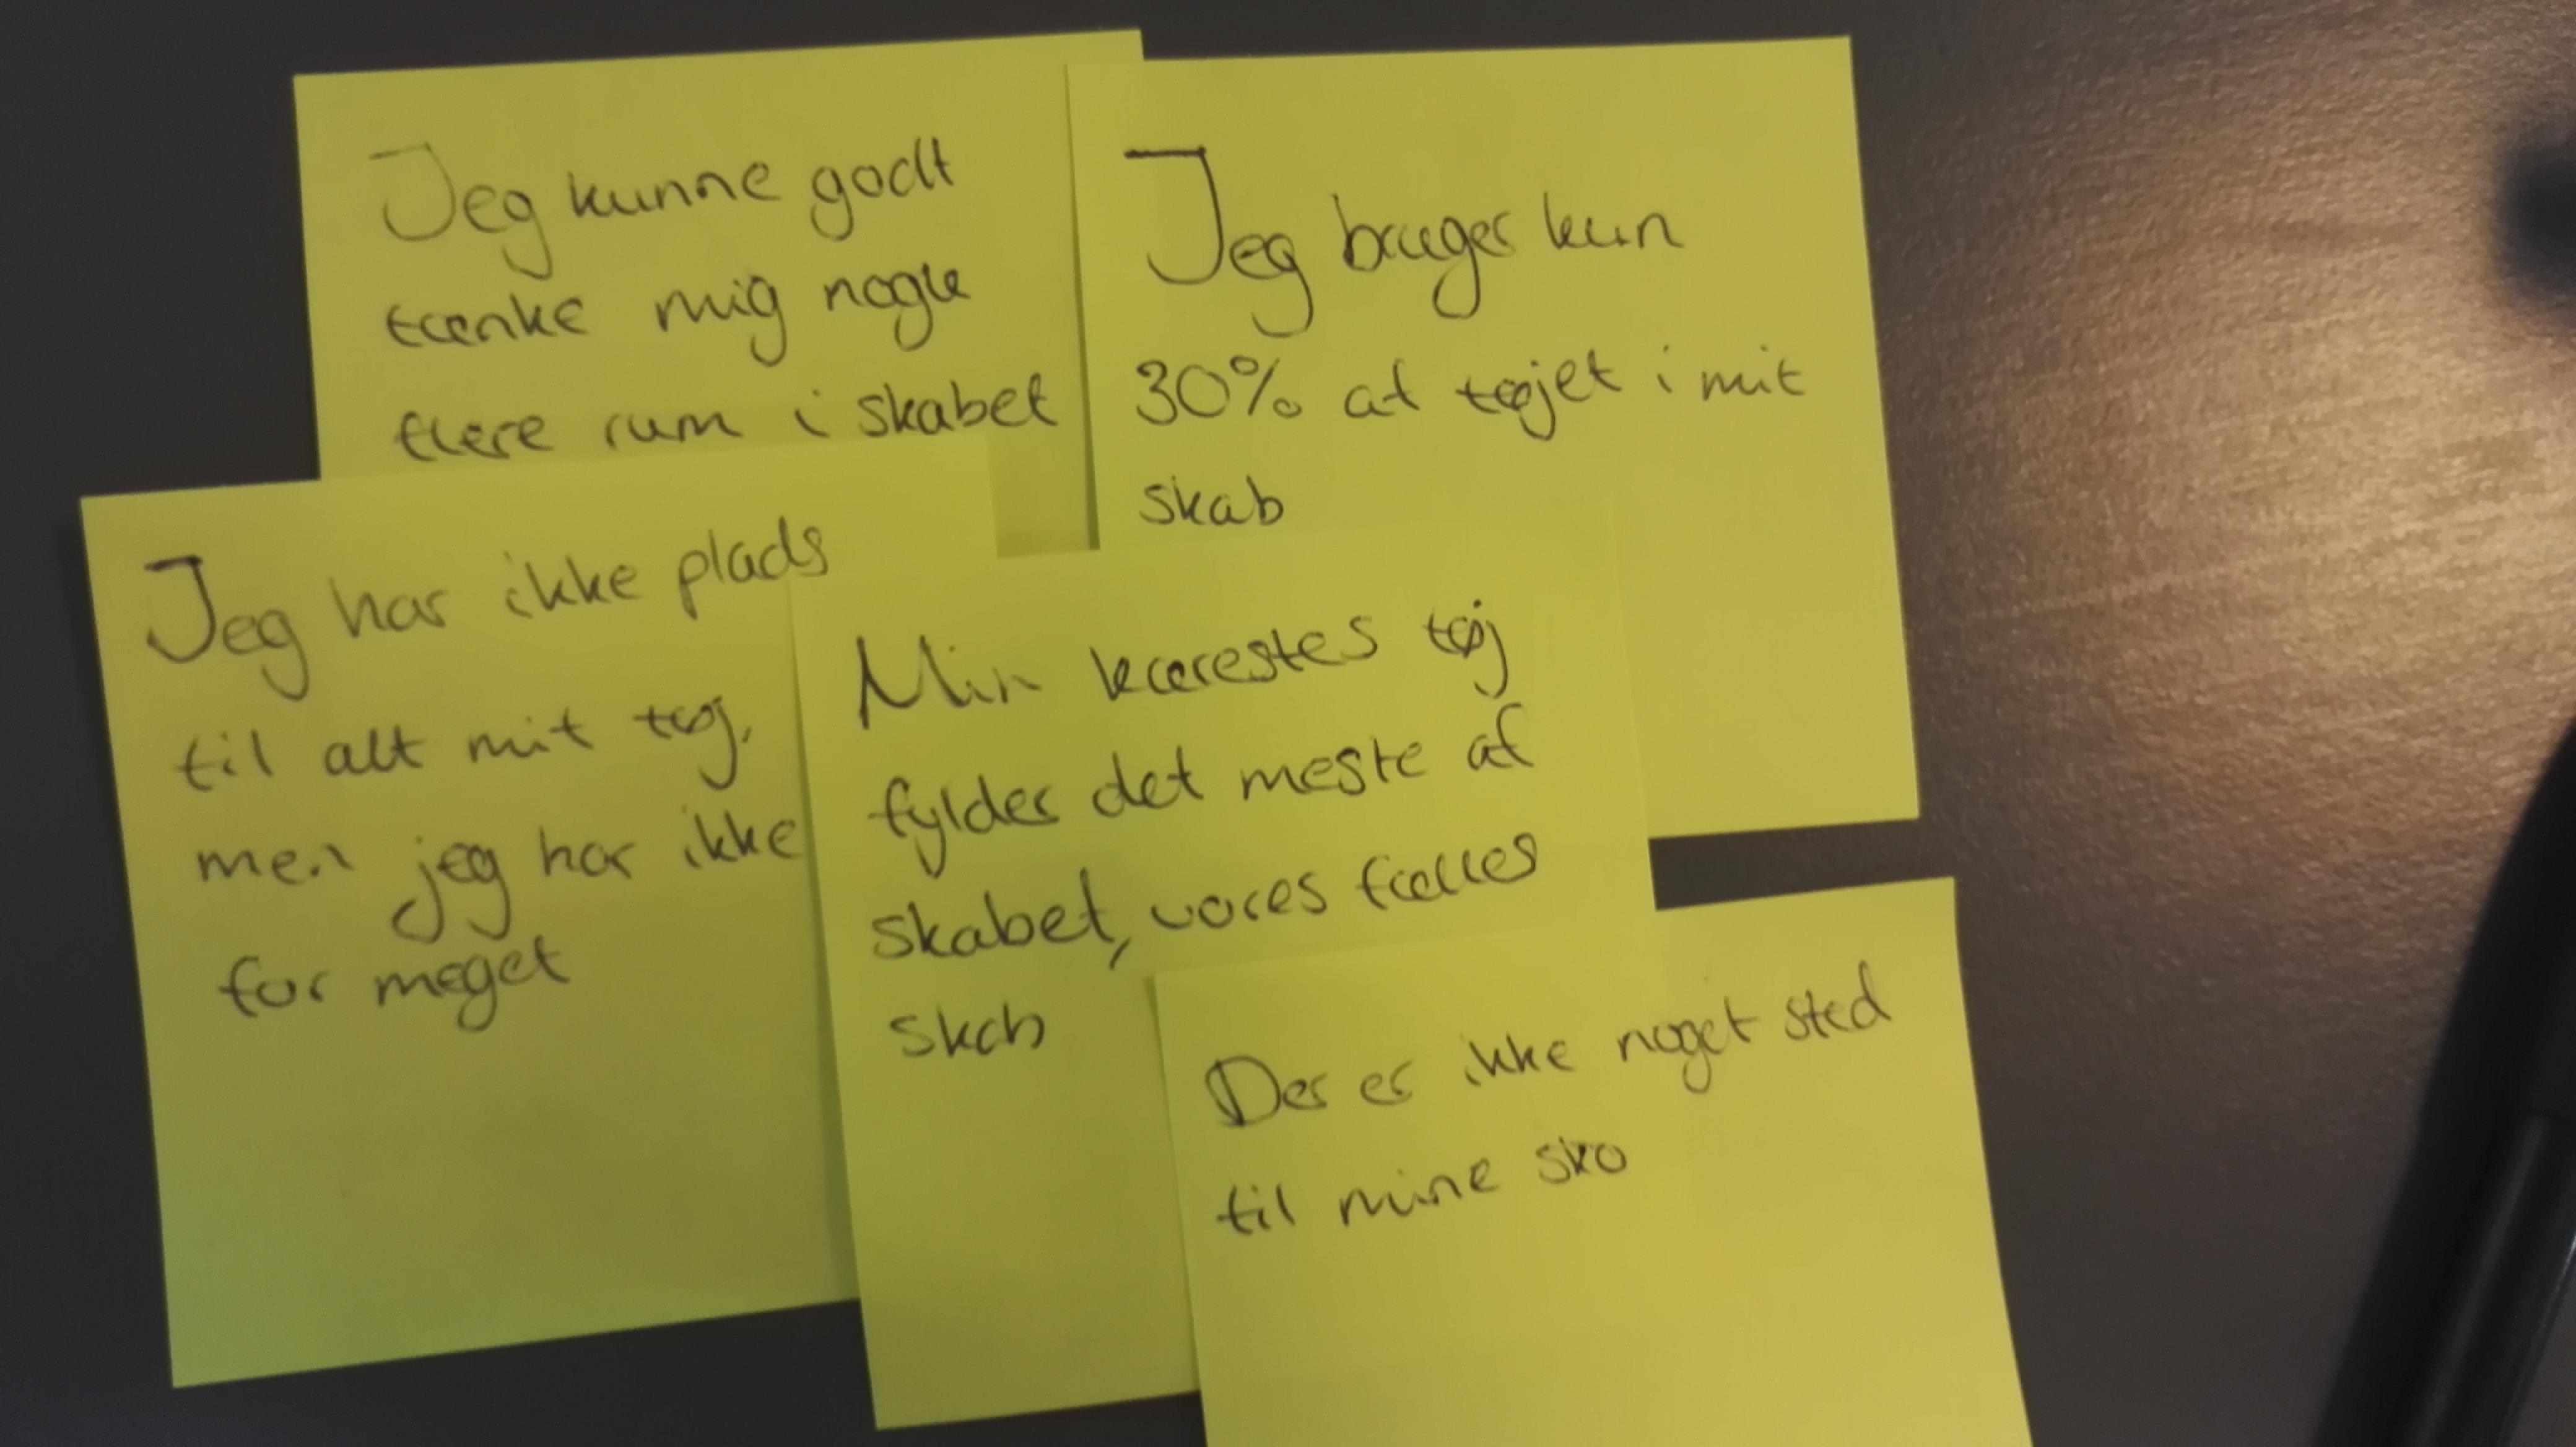 Jeg kunne godt
tænke mig nogle
flere rum i skabet
Jeg bruger kun
30% af tøjet i mit
skab
Jeg har ikke plads
til alt mit tøj,
men jeg har ikke
for meget
Min kærestes tøj
fylder det meste af
skabet, vores fælles
skab
Der er ikke noget sted
til mine sko